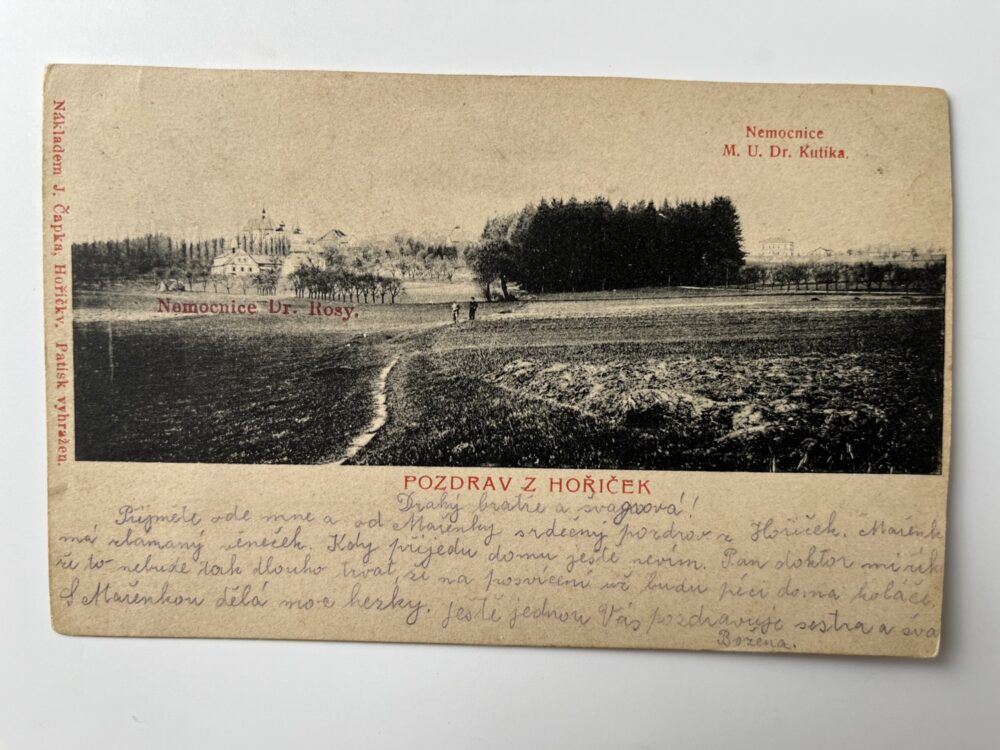 Nákladem J. Čapka, Hořičky. Patisk vyhražen.
Nemocnice
M. U. Dr. Kutíka.
Nemocnice Dr. Rosy.
POZDRAV Z HOŘIČEK
Drahý bratře a švagrová!
Přijměte ode mne a od Mařenky srdečný pozdrav z Hořiček. Mařenk
má zlámaný věneček. Kdy přijedu domu ještě nevím. Pan doktor mi řík
že to nebude tak dlouho trvat, ši na posvícení už budu péci doma koláče.
S Mařenkou dělá moc hezky. Ještě jednou Vás pozdravuje sestra a šva
Božena.